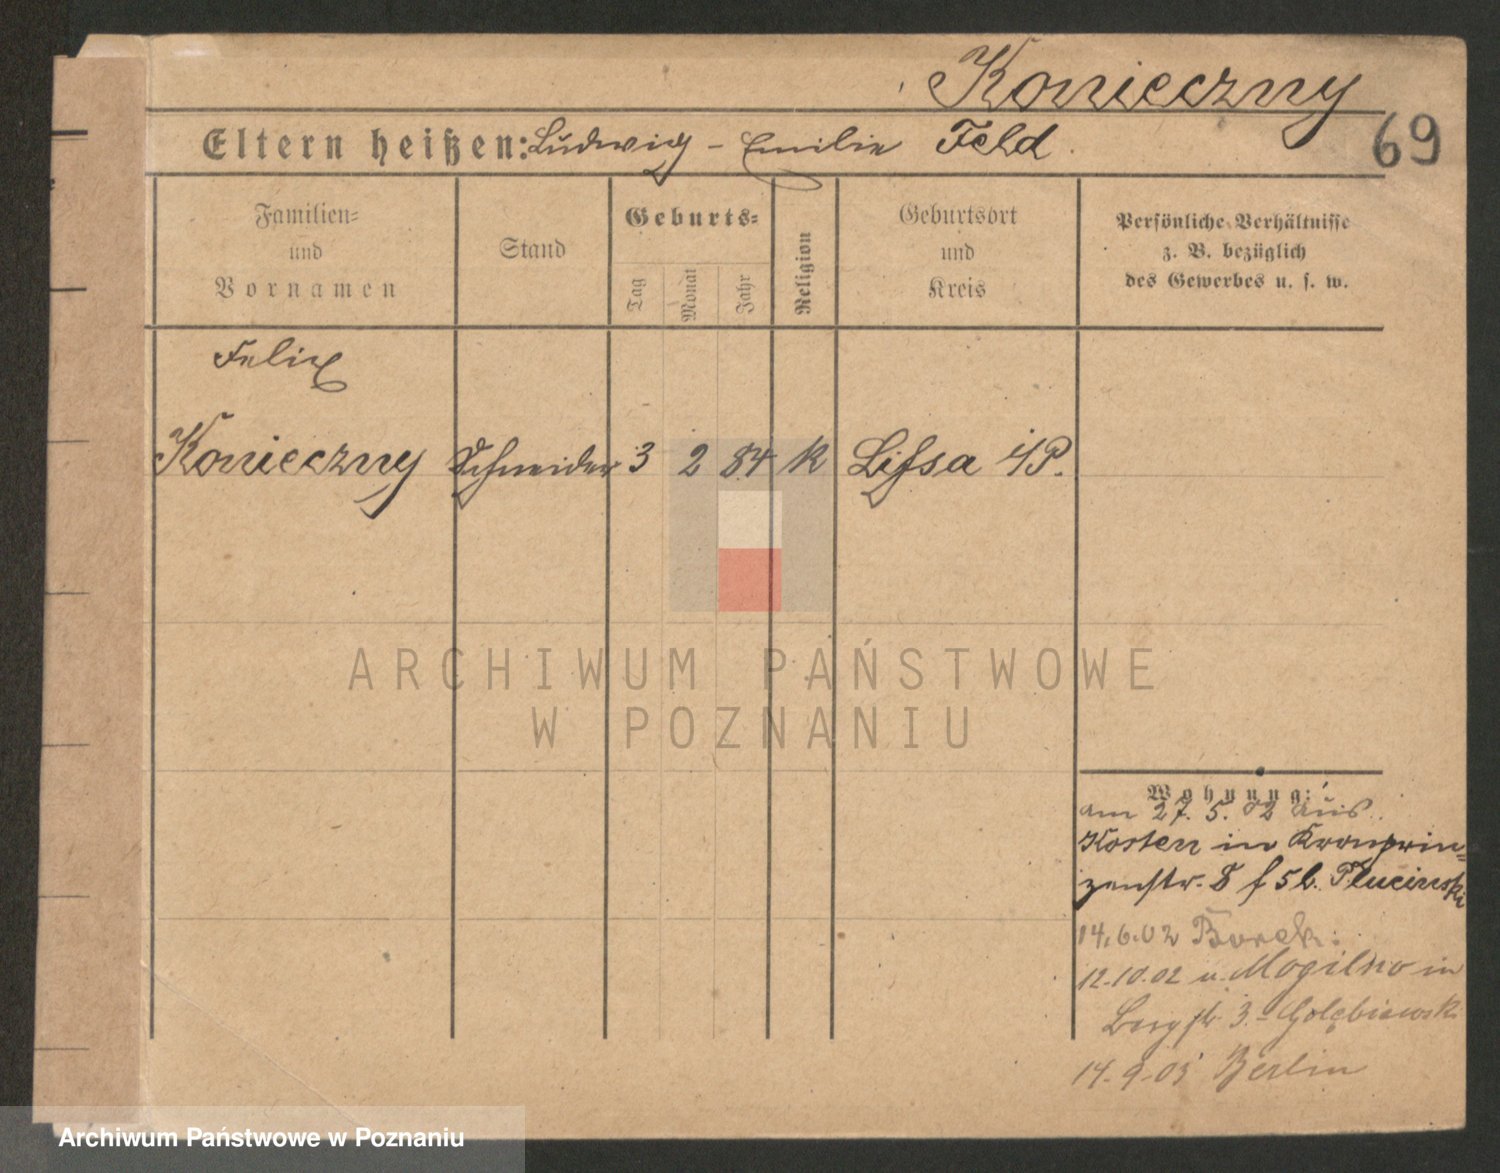 Konieczny
Eltern heißen: Ludwig - Emilie Feld.
69
Familien-
und
Vornamen
Stand
Geburts-
Tag
Monat
Jahr
Religion
Geburtsort
und
Kreis
Persönliche Verhältnisse
z. B. bezüglich
des Gewerbes u. s. w.
Felix
Konieczny Schneider 3 2 84 k Lissa i/P.
ARCHIWUM PAŃSTWOWE
W POZNANIU
Wohnung:
am 27. 5. 02 aus
Kosten in Kronprin-
zenstr. 8 b. Plucinski
14.6.02 Borek.
12.10.02 u. Mogilno in
Bergstr 3 - Golębiewski
14-9-05 Berlin
Archiwum Państwowe w Poznaniu